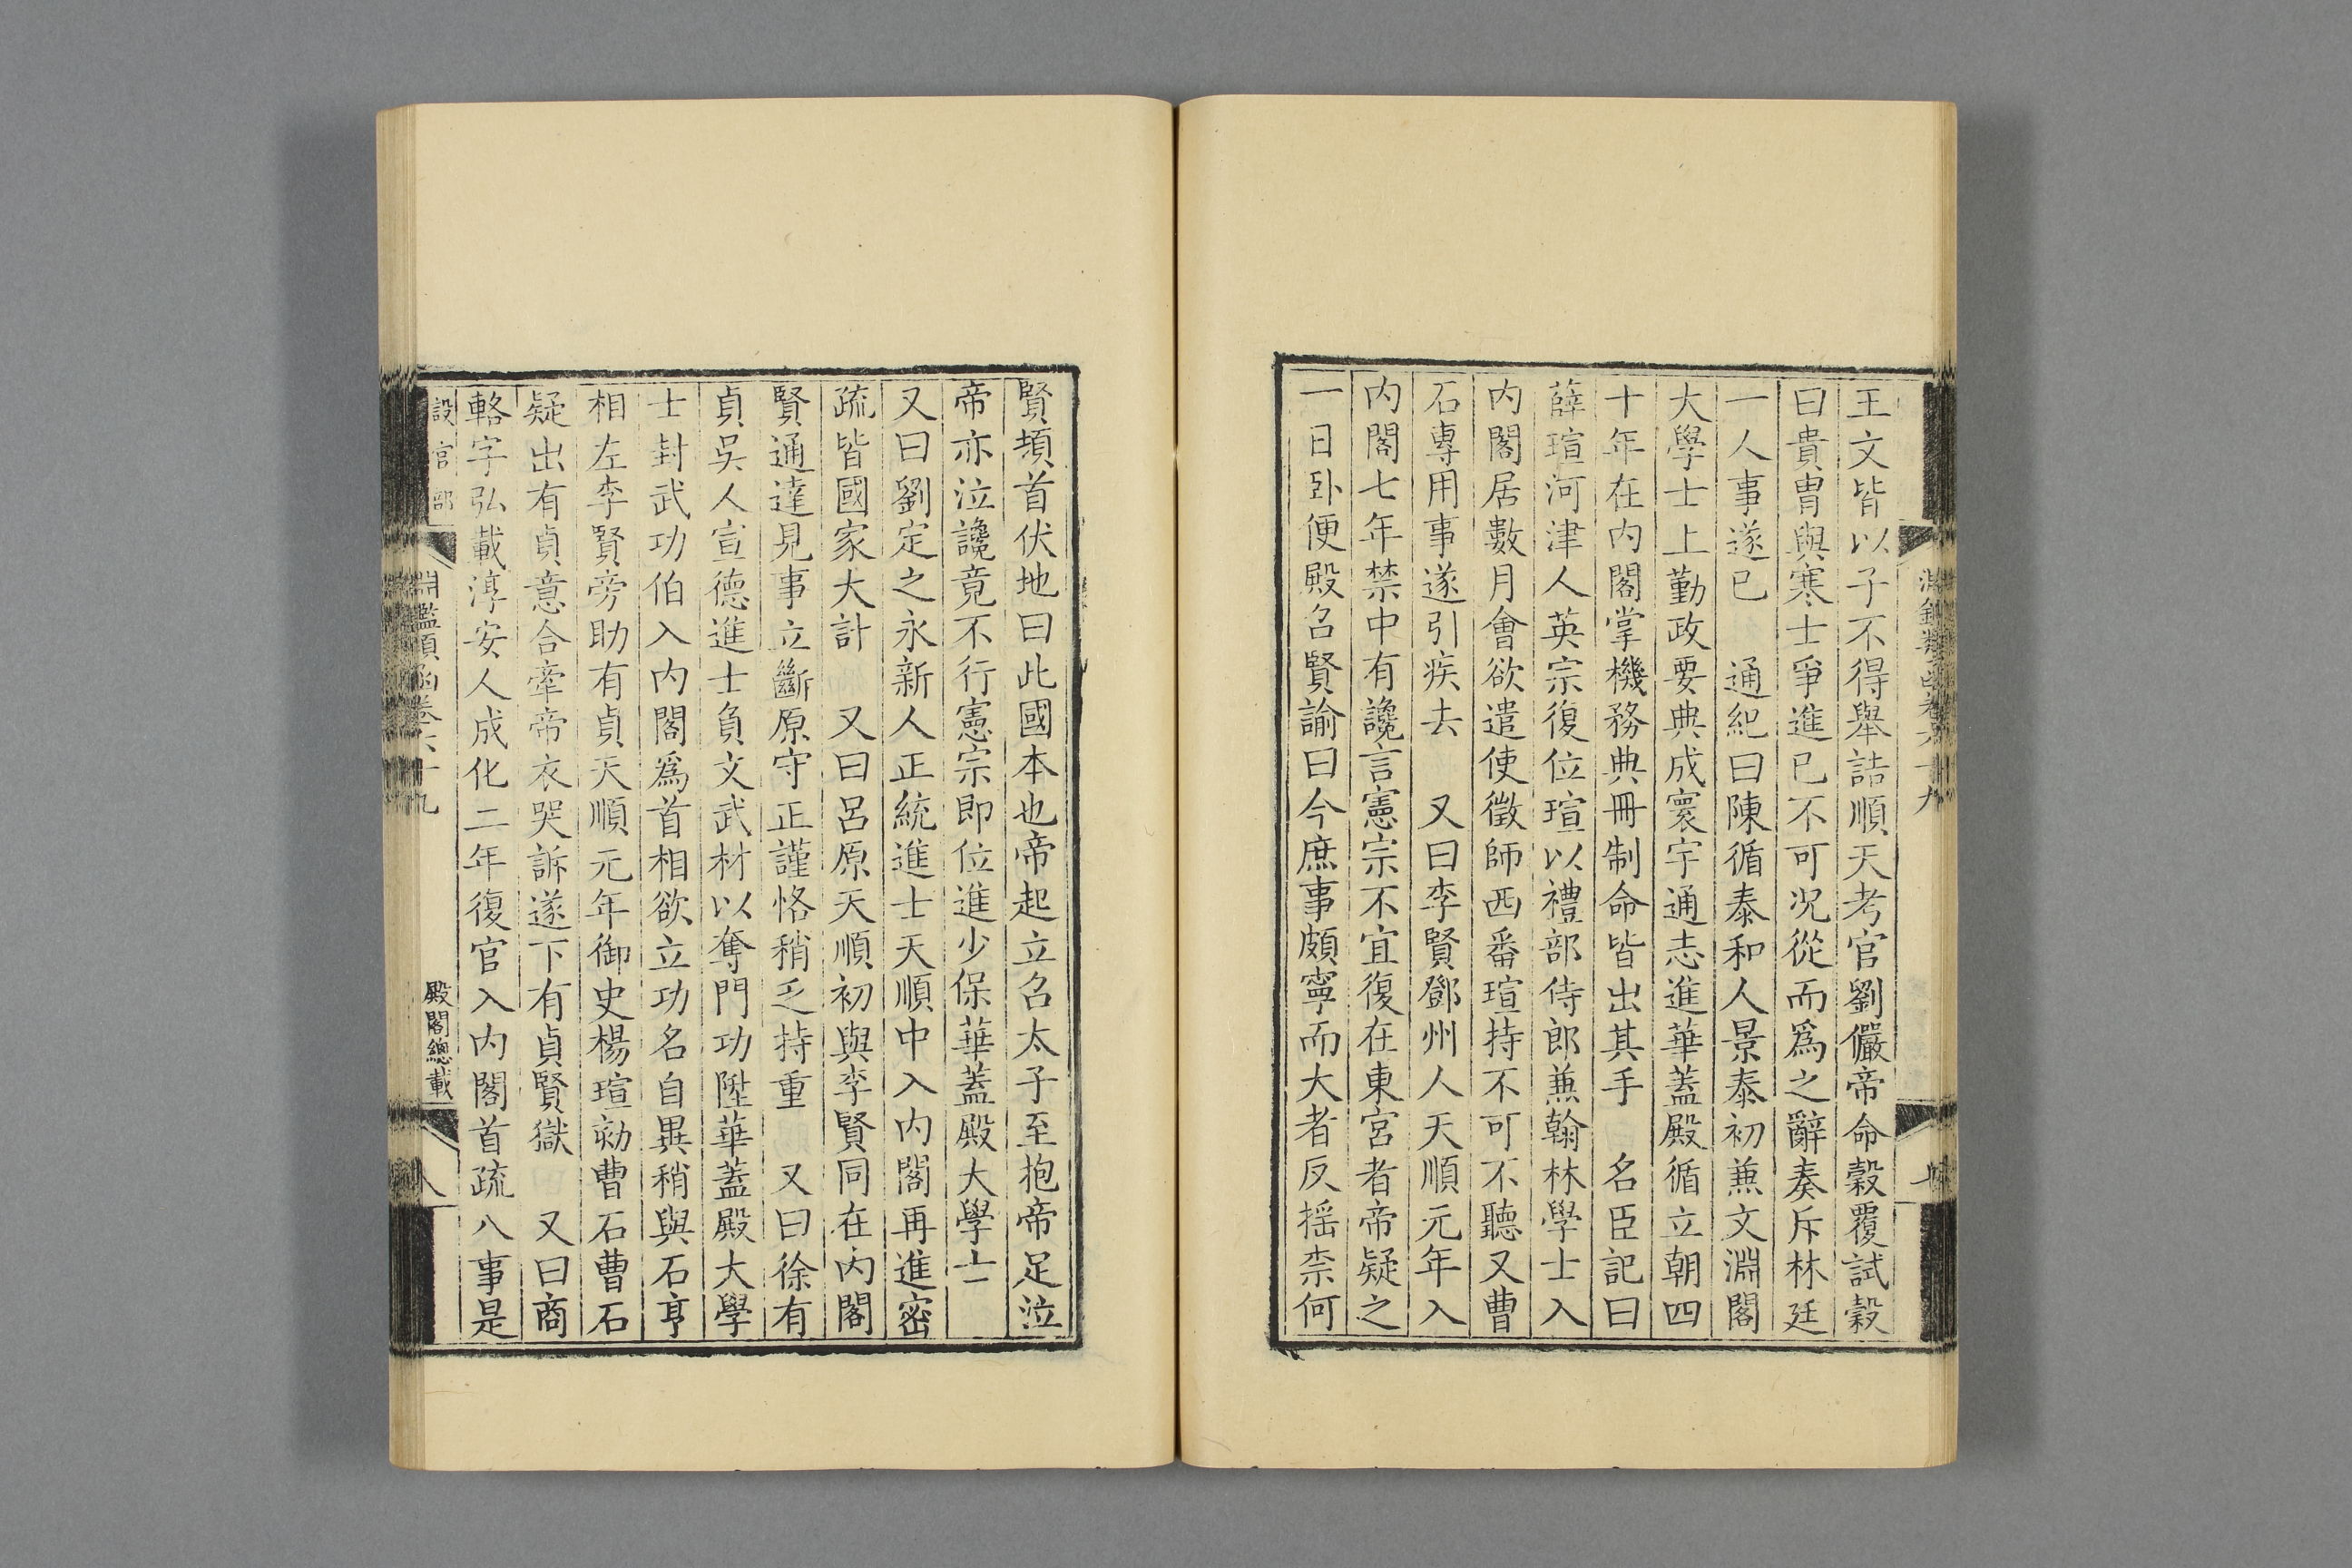 王文皆以子不得舉詰順天考官劉儼帝命穀覆試穀
曰貴胄與寒士爭進已不可況從而爲之辭奏斥林廷
一人事遂已　通紀曰陳循泰和人景泰初兼文淵閣
大學士上勤政要典成寰宇通志進華蓋殿循立朝四
十年在内閣掌機務典冊制命皆出其手　名臣記曰
薛瑄河津人英宗復位瑄以禮部侍郎兼翰林學士入
内閣居數月會欲遣使徵師西番瑄持不可不聽又曹
石專用事遂引疾去　又曰李賢鄧州人天順元年入
内閣七年禁中有讒言憲宗不宜復在東宮者帝疑之
一日卧便殿召賢諭曰今庶事頗寧而大者反揺柰何
賢頓首伏地曰此國本也帝起立召太子至抱帝足泣
帝亦泣讒竟不行憲宗即位進少保華蓋殿大學士
又曰劉定之永新人正統進士天順中入内閣再進密
疏皆國家大計　又曰呂原天順初與李賢同在内閣
賢通達見事立斷原守正謹恪稍乏持重　又曰徐有
貞吳人宣德進士負文武材以奪門功陞華蓋殿大學
士封武功伯入内閣爲首相欲立功名自異稍與石亨
相左李賢旁助有貞天順元年御史楊瑄劾曹石曹石
疑出有貞意合牽帝衣哭訴遂下有貞賢獄　又曰商
輅字弘載淳安人成化二年復官入内閣首疏八事是
設官部
淵鑑類函卷六十九
殿閣總載
八